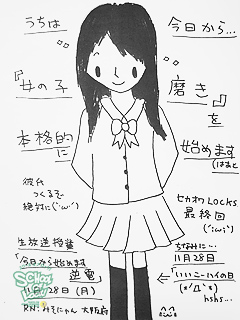 うちは
今日から…
『女の子
磨き』を
本格的に
始めます
(はぁと
彼氏
つくるぞ
絶対に(´・ω・`)
セカオワLOCKS
最終回
(´;ω;`)
生放送授業
『今日から始めます
逆電』
11月28日(月)
RN:みそにゃん 大阪府
ちなみに…
11月28日
←『いいにーハイの日』
(*´Д`*)
hshs…
SCHOOL OF LOCK!